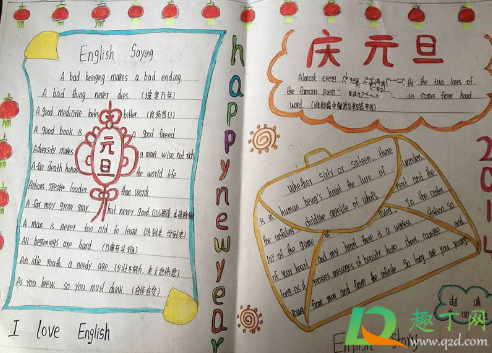 English Saying
A bad beginning makes a bad ending.
A bad thing never dies. (遗臭万年)
A good medicine tastes bitter. (良药苦口)
A good book is a good friend.
Adversity makes a man wise, not rich
A far death honor the world life.
Actions speaker louder than words
A fox may grow gray, but never good
A man is never too old to learn (活到老 学到老)
All beginnings are hard (万事开头难)
An idle youth, a needy age (少壮不努力 老大徒伤悲)
As you brew, so you must drink (自作自受)
元旦
I love English
happy new year
庆元旦
Almost every
the two lines of
the famous poem
comes from hard
word
2014
Whether sixty or sixteen, there
is in human being's heart the lure of wonders,
the unfailing childlike appetite of what's next and the
joy of the game of
of your heart and my heart there is a wireless station: so
long as it receives messages of beauty, hope, cheer, courage and
power from men and from the infinite, so long are you young.
English Story
趣丁网
www.q2d.com